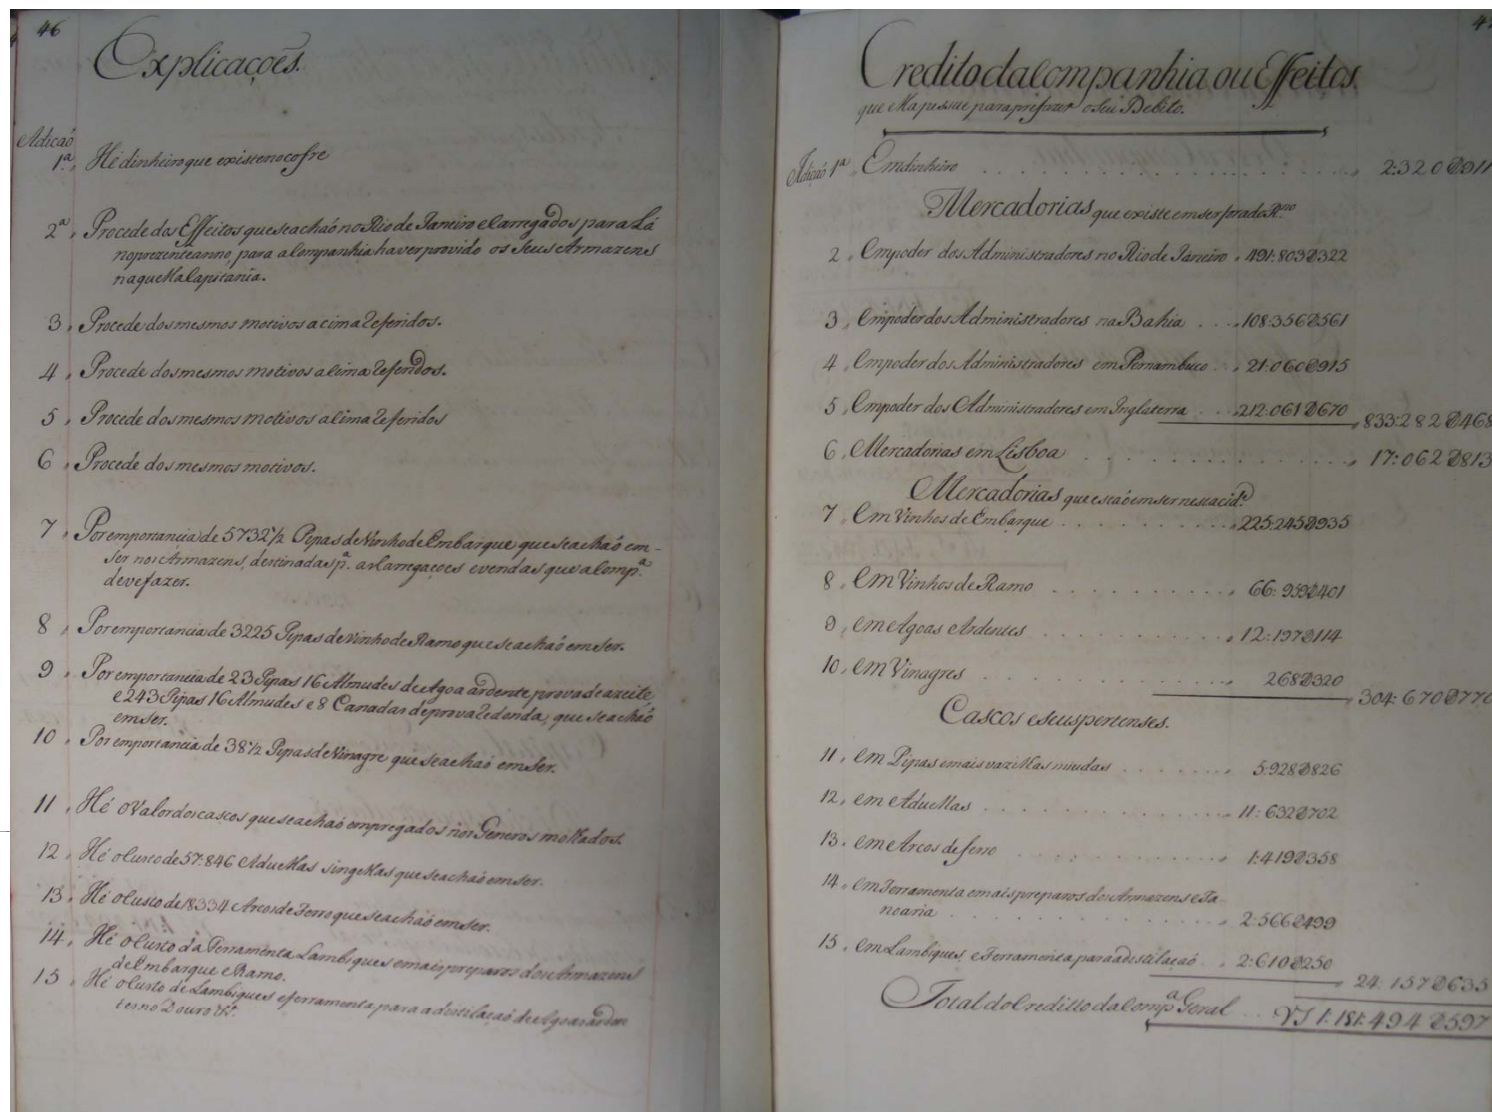 46
Explicaçoẽs.
Adicaó
1ª, Hé dinheiro que existe no cofre
2ª, Procede dos Effeitos que se achaó no Rio de Janeiro e Carregados para Lá
no prezente anno, para a Companhia haver provido os Seus Armazens
naquella Capitania.
3, Procede dos mesmos motivos acima referidos.
4, Procede dos mesmos motivos acima referidos.
5, Procede dos mesmos motivos acima referidos
6, Procede dos mesmos motivos.
7, Por emportancia de 5732½ Pipas de Vinho de Embarque que se achaó em-
ser nos Armazens, destinadas pª. as Carregaçoes e vendas que a Compª.
deve fazer.
8, Por emportancia de 3225 Pipas de vinho de Ramo que se achaó em ser.
9, Por emportancia de 23 Pipas 16 Almudes de Agoa ardente, prova de azeite
e 243 Pipas 16 Almudes e 8 Canadas de prova redonda, que se achaó
em ser.
10, Por emportancia de 38½ Pipas de Vinagre que se achaó em ser.
11, Hé o Valor dos cascos que se achaó empregados nos Generos molhados.
12, Hé o Custo de 57:846 Aduellas singellas que se achaó em ser.
13, Hé o Custo de 18334 Arcos de Ferro que se achaó em ser.
14, Hé o Custo da Ferramenta Lambiques e mais preparos dos Armazens
de Embarque e Ramo.
15, Hé o Custo de Lambiques e ferramenta para a distilaçaó de Agoas arden
tes no Douro &ª.
Credito da Companhia ou Effeitos.
que ella possue para prefazer o Seu Debito.
Adicaó 1ª, Em dinheiro 2:320$911
Mercadorias que existe em ser fora do Rno
2, Em poder dos Administradores no Rio de Janeiro 491:803$322
3, Em poder dos Administradores na Bahia 108:356$561
4, Em poder dos Administradores em Pernambuco 21:060$915
5, Em poder dos Administradores em Inglaterra 212:061$670 833:282$468
6, Mercadorias em Lisboa 17:062$813
Mercadorias que estaó em ser nesta cide
7 Em Vinhos de Embarque 225:245$935
8, Em Vinhos de Ramo 66:959$401
9, em Agoas Ardentes 12:197$114
10, em Vinagres 268$320 304:670$770
Cascos e seus pertenses.
11, em Pipas e mais vazilhas miudas 5:928$826
12, em Aduellas 11:632$702
13, em Arcos de ferro 1:419$358
14, em Ferramenta e mais preparos dos Armazens e Ta-
noaria 2:566$499
15, em Lambiques, e Ferramenta para a distilaçaó 2:610$250 24:157$635
Total do Creditto da Compª Geral 1:181:494$597